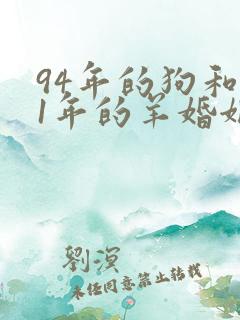 94年的狗和
1年的羊婚姻
劉溟
未经同意禁止转载